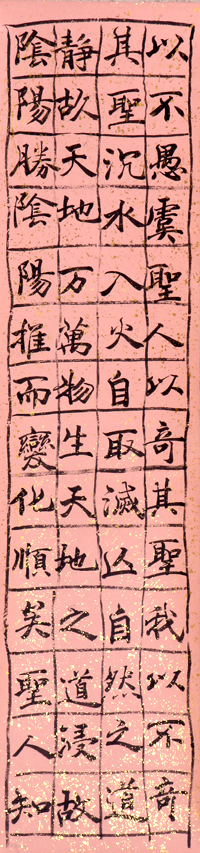 以不愚虞聖人以奇其聖我以不奇
其聖沉水入火自取滅亾自然之道
静故天地万萬物生天地之道浸故
陰陽勝陰陽推而變化順矣聖人知